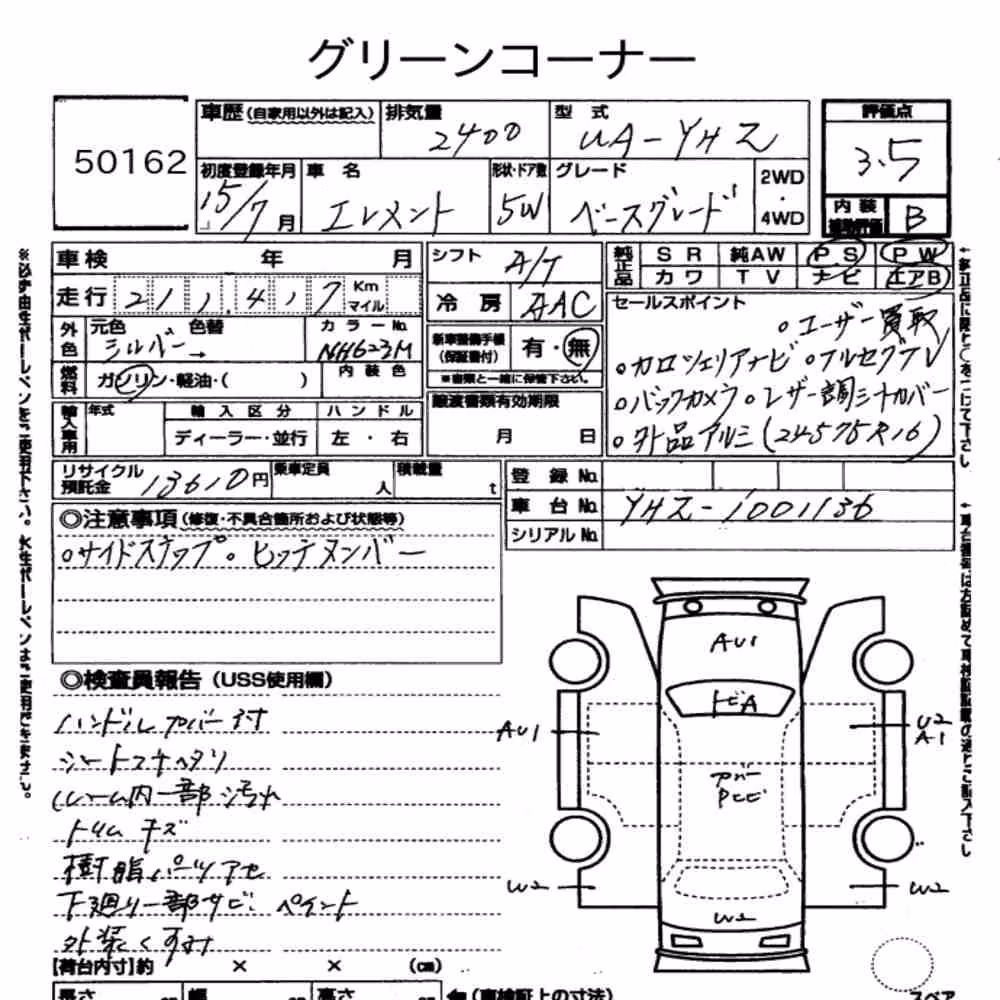 グリーンコーナー
50162
車歴(自家用以外は記入) 排気量 2400 型式 UA-YH2
評価点 3.5
初度登録年月 15/7月 車名 エレメント 形状・ドア数 5W グレード ベースグレード 2WD・4WD
内装 補助評価 B
車検 年 月 シフト A/T 純正品 SR 純AW PS PW
走行 21,4,7 Km マイル 冷房 AAC カワ TV ナビ エアB
外色 元色 シルバー → 色替 カラーNo. NH623M
新車整備手帳(保証書付) 有・無
※書類と一緒に保管下さい。
燃料 ガソリン・軽油・( ) 内装色
輸入車用 年式 輸入区分 ディーラー・並行 ハンドル 左・右
譲渡書類有効期限 月 日
セールスポイント
○ユーザー買取
○カロッェリアナビ ○フルセグTV
○バックカメラ ○レザー調シートカバー
○外品アルミ(24575R16)
リサイクル預託金 13610円 乗車定員 人 積載量 t
登録No.
車台No. YH2-1001136
シリアルNo.
◎注意事項(修復・不具合箇所および状態等)
○サイドステップ ○ヒッチメンバー
◎検査員報告(USS使用欄)
ハンドルカバー付
シートスナヘタリ
ルーム内一部汚れ
トリムキズ
樹脂パーツアセ
下廻り一部サビ ペイント
外装くすみ
AU1
トビA
AU1
U2
A1
W2
W2
W2
【荷台内寸】約 × × (cm)
長さ cm 幅 cm 高さ cm (車検証上の寸法)
スペア